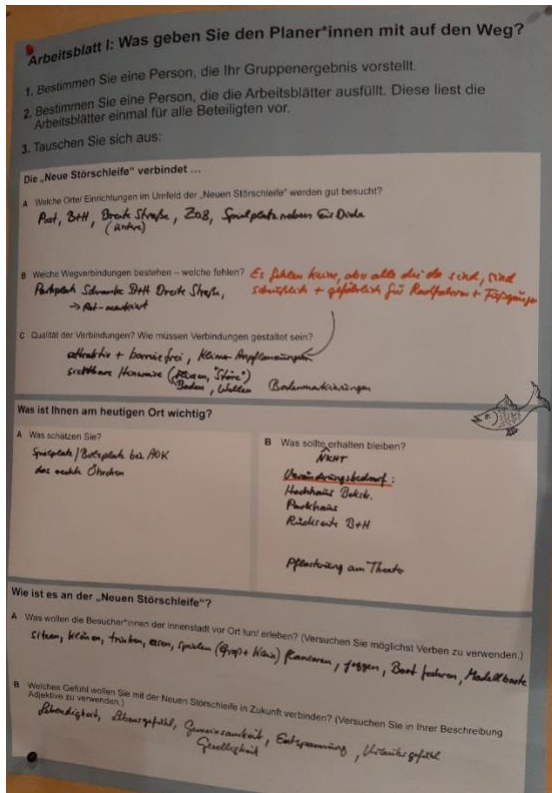 Arbeitsblatt I: Was geben Sie den Planer*innen mit auf den Weg?
1. Bestimmen Sie eine Person, die Ihr Gruppenergebnis vorstellt.
2. Bestimmen Sie eine Person, die die Arbeitsblätter ausfüllt. Diese liest die
Arbeitsblätter einmal für alle Beteiligten vor.
3. Tauschen Sie sich aus:
Die „Neue Störschleife" verbindet ...
A Welche Orte/ Einrichtungen im Umfeld der „Neuen Störschleife" werden gut besucht?
Post, B+H, Breite Straße, ZOB, Spielplatz neben
(untere)
B Welche Wegverbindungen bestehen – welche fehlen?
Es fehlen keine, aber alle die da sind, sind
scheußlich + gefährlich für Radfahrer + Fußgänger
Parkplatz B+H Breite Straße,
C Qualität der Verbindungen? Wie müssen Verbindungen gestaltet sein?
attraktiv + barrierefrei, Anpflanzungen
sichtbare Hinweise ("Störe")
Boden, Wellen Bodenmarkierungen
Was ist Ihnen am heutigen Ort wichtig?
A Was schätzen Sie?
Spielplatz/Bolzplatz bei AOK
das
B Was sollte erhalten bleiben?
NICHT
Veränderungsbedarf:
Hochhaus
Parkhaus
Rückseite B+H
Pflasterung am Theater
Wie ist es an der „Neuen Störschleife"?
A Was wollen die Besucher*innen der Innenstadt vor Ort tun/ erleben? (Versuchen Sie möglichst Verben zu verwenden.)
sitzen, klönen, trinken, essen, spielen (Groß + Klein) flanieren, joggen, Boot fahren, Modellboote
B Welches Gefühl wollen Sie mit der Neuen Störschleife in Zukunft verbinden? (Versuchen Sie in Ihrer Beschreibung
Adjektive zu verwenden.)
Lebendigkeit, Lebensgefühl, Gemeinsamkeit, Entspannung, Urlaubsgefühl
Geselligkeit